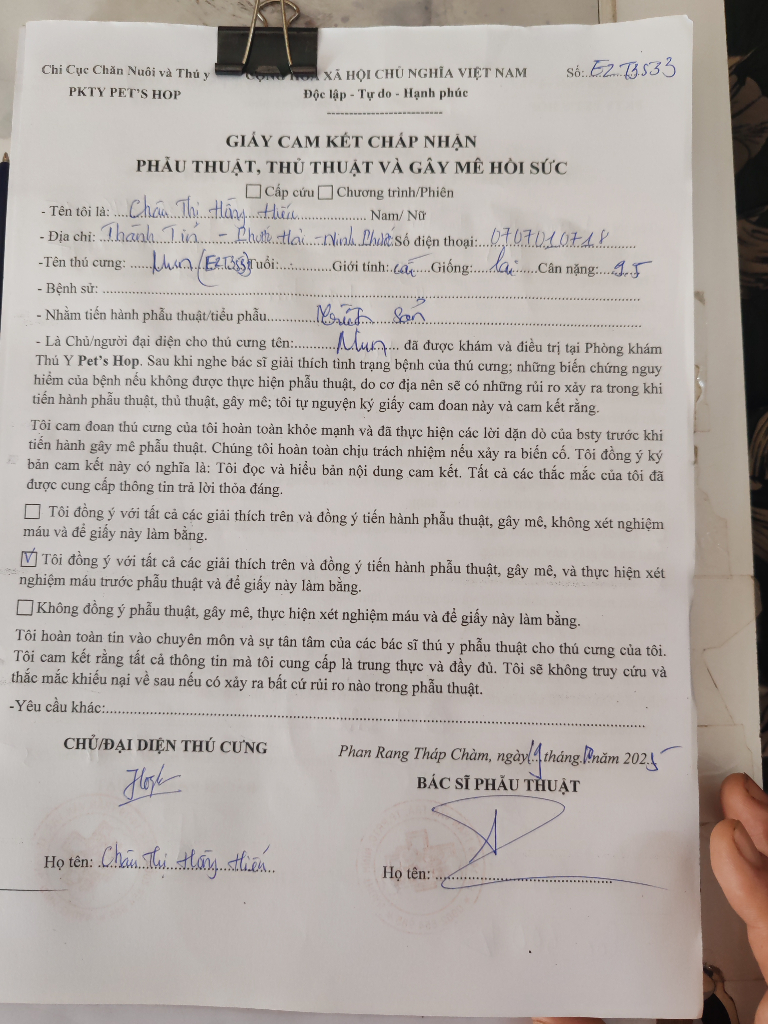 Chi Cục Chăn Nuôi và Thú y
PKTY PET'S HOP
CỘNG HÒA XÃ HỘI CHỦ NGHĨA VIỆT NAM
Độc lập - Tự do - Hạnh phúc
Số: E2T3533
GIẤY CAM KẾT CHẤP NHẬN
PHẪU THUẬT, THỦ THUẬT VÀ GÂY MÊ HỒI SỨC
Cấp cứu Chương trình/Phiên
- Tên tôi là: Châu Thị Hồng Hiếu Nam/ Nữ
- Địa chỉ: Thành Tín - Phước Hải - Ninh Phước Số điện thoại: 0707010718
-Tên thú cưng: Mun Tuổi: Giới tính: cái Giống: lai Cân nặng: 9.5
- Bệnh sử:
- Nhằm tiến hành phẫu thuật/tiểu phẫu sản
- Là Chủ/người đại diện cho thú cưng tên: Mun đã được khám và điều trị tại Phòng khám
Thú Y Pet's Hop. Sau khi nghe bác sĩ giải thích tình trạng bệnh của thú cưng; những biến chứng nguy
hiểm của bệnh nếu không được thực hiện phẫu thuật, do cơ địa nên sẽ có những rủi ro xảy ra trong khi
tiến hành phẫu thuật, thủ thuật, gây mê; tôi tự nguyện ký giấy cam đoan này và cam kết rằng.
Tôi cam đoan thú cưng của tôi hoàn toàn khỏe mạnh và đã thực hiện các lời dặn dò của bsty trước khi
tiến hành gây mê phẫu thuật. Chúng tôi hoàn toàn chịu trách nhiệm nếu xảy ra biến cố. Tôi đồng ý ký
bản cam kết này có nghĩa là: Tôi đọc và hiểu bản nội dung cam kết. Tất cả các thắc mắc của tôi đã
được cung cấp thông tin trả lời thỏa đáng.
Tôi đồng ý với tất cả các giải thích trên và đồng ý tiến hành phẫu thuật, gây mê, không xét nghiệm
máu và để giấy này làm bằng.
Tôi đồng ý với tất cả các giải thích trên và đồng ý tiến hành phẫu thuật, gây mê, và thực hiện xét
nghiệm máu trước phẫu thuật và để giấy này làm bằng.
Không đồng ý phẫu thuật, gây mê, thực hiện xét nghiệm máu và để giấy này làm bằng.
Tôi hoàn toàn tin vào chuyên môn và sự tân tâm của các bác sĩ thú y phẫu thuật cho thú cưng của tôi.
Tôi cam kết rằng tất cả thông tin mà tôi cung cấp là trung thực và đầy đủ. Tôi sẽ không truy cứu và
thắc mắc khiếu nại về sau nếu có xảy ra bất cứ rủi ro nào trong phẫu thuật.
-Yêu cầu khác:
CHỦ/ĐẠI DIỆN THÚ CƯNG
Phan Rang Tháp Chàm, ngày 19 tháng năm 2025
BÁC SĨ PHẪU THUẬT
Họ tên: Châu Thị Hồng Hiếu
Họ tên: